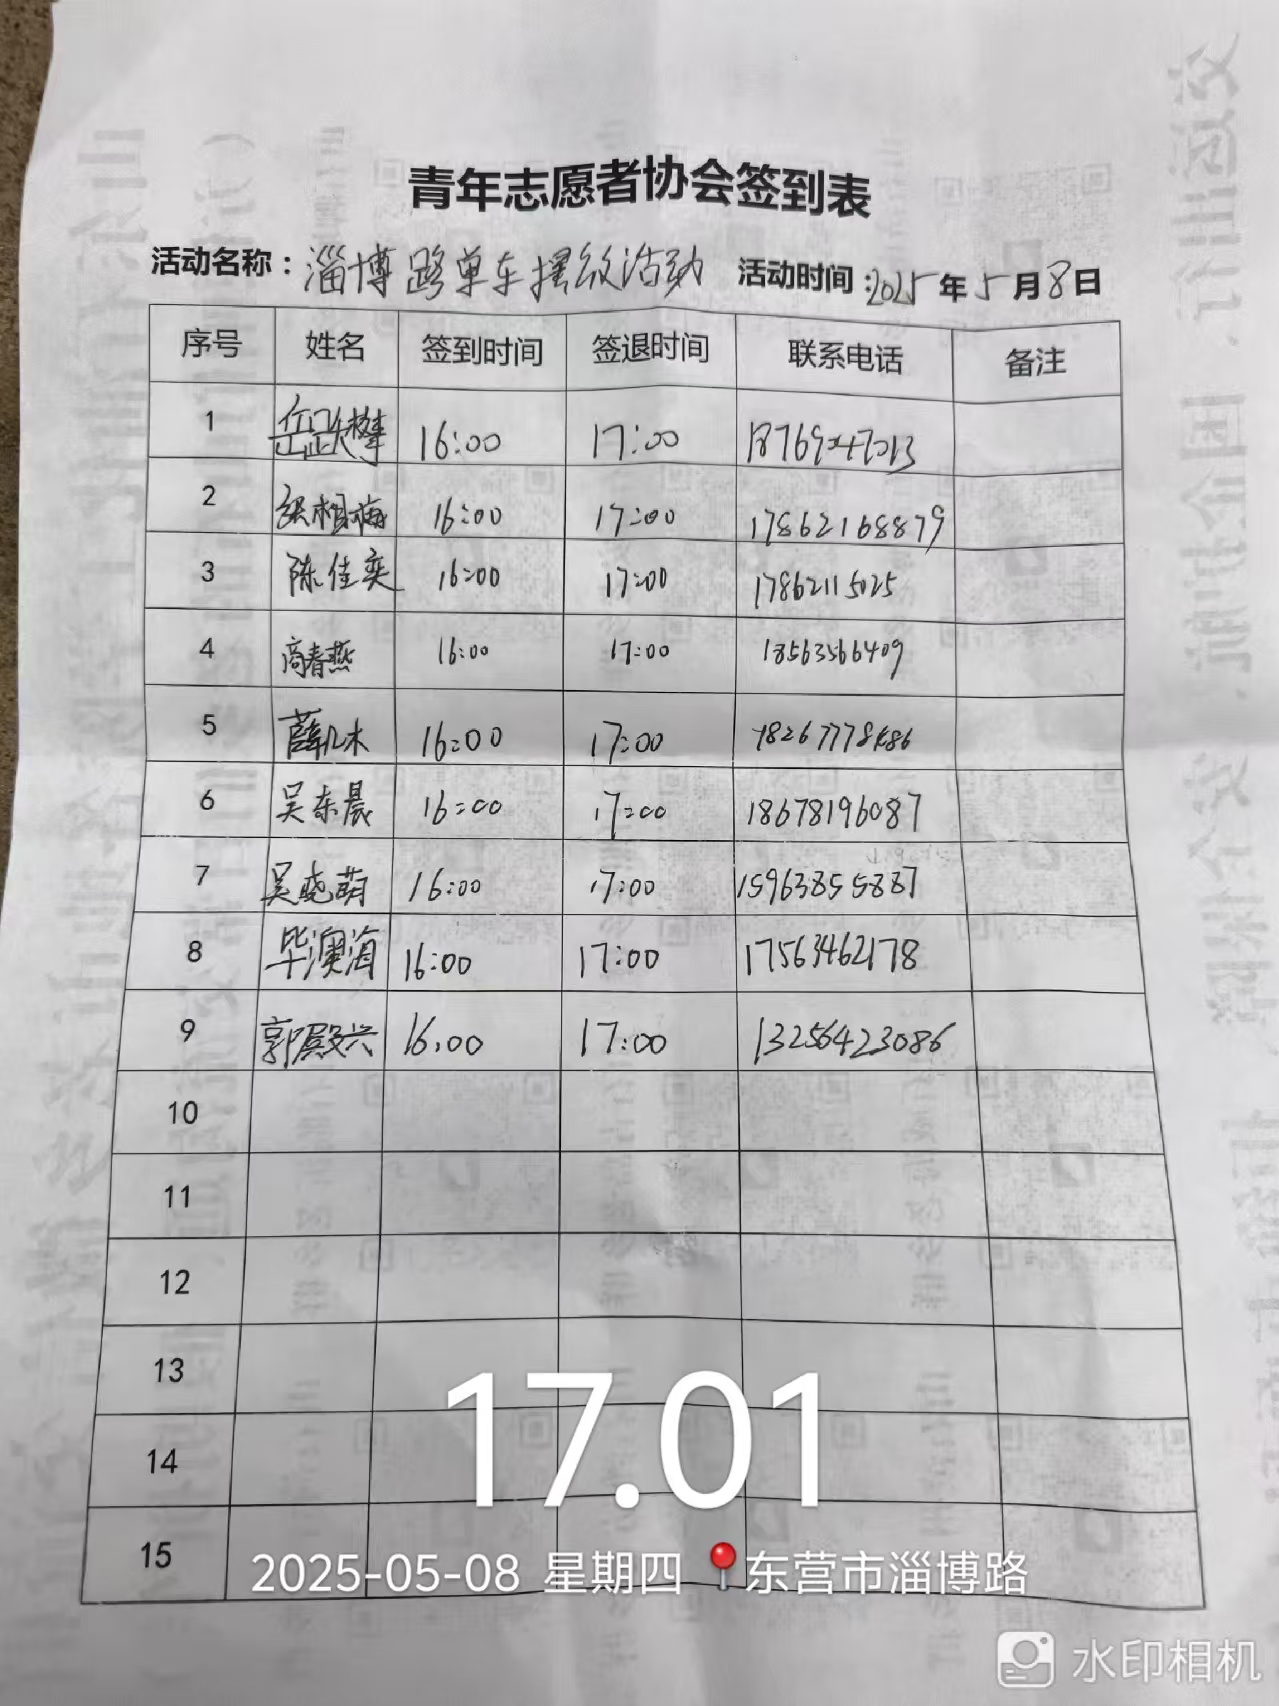 青年志愿者协会签到表
活动名称：淄博路单车摆放活动 活动时间：2025年5月8日
序号 姓名 签到时间 签退时间 联系电话 备注
1 16:00 17:00
2 张相梅 16:00 17:00 17862168879
3 陈佳奕 16:00 17:00 17862115025
4 高春燕 16:00 17:00 18563566409
5 16:00 17:00
6 吴东晨 16:00 17:00 18678196087
7 吴晓萌 16:00 17:00 15963855887
8 毕澳海 16:00 17:00 17563462178
9 郭殿兴 16.00 17:00 13256423086
10
11
12
13
14
15
17.01
2025-05-08 星期四 东营市淄博路
水印相机